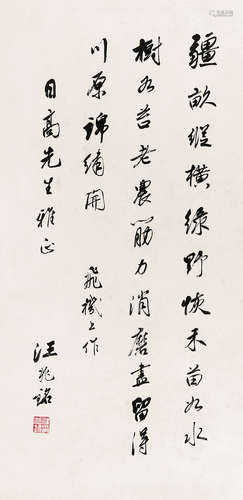 疆畝縱橫綠野恢禾苗如水
樹如苔老農筋力消磨盡留得
川原錦繡開 飛機上作
日高先生雅正
汪兆銘